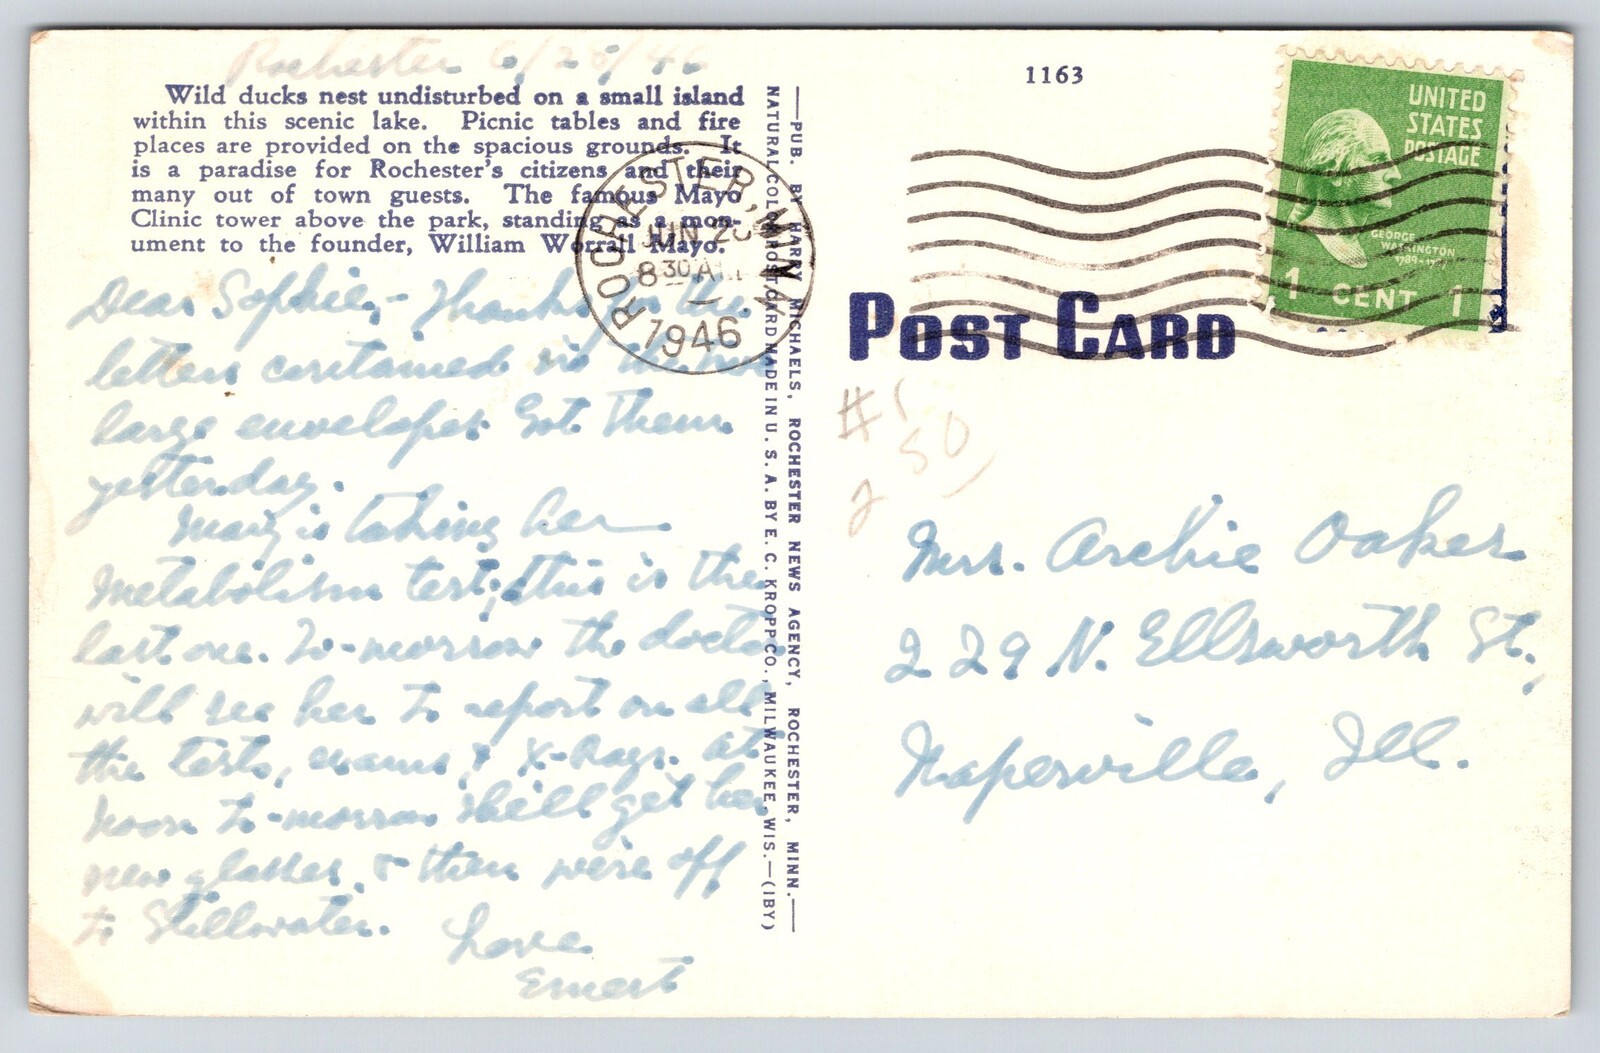 Rochester 6/28/46
Wild ducks nest undisturbed on a small island
within this scenic lake. Picnic tables and fire
places are provided on the spacious grounds. It
is a paradise for Rochester's citizens and their
many out of town guests. The famous Mayo
Clinic tower above the park, standing as a mon-
ument to the founder, William Worrall Mayo.
Dear Sophie,- Thanks for the
letters contained in the
large envelope. Got them
yesterday.
Mary is taking her
metabolism test; this is the
last one. To-morrow the doctor
will see her to report on all
the tests, exams, & X-Rays. At
noon to-morrow she'll get her
new glasses & then we're off
to Stillwater.
Love
Ernest
—PUB. BY HARRY MICHAELS, ROCHESTER NEWS AGENCY, ROCHESTER, MINN.—
NATURAL COLOR POST CARD MADE IN U. S. A. BY E. C. KROPP CO., MILWAUKEE, WIS.—(IBY)
ROCHESTER, MINN.
JUN 28
8 30 AM
1946
1163
UNITED
STATES
POSTAGE
GEORGE
WASHINGTON
1789-1797
1 CENT 1
POST CARD
#1
50
2
Mrs. Archie Oaker
229 N. Ellsworth St.,
Naperville, Ill.